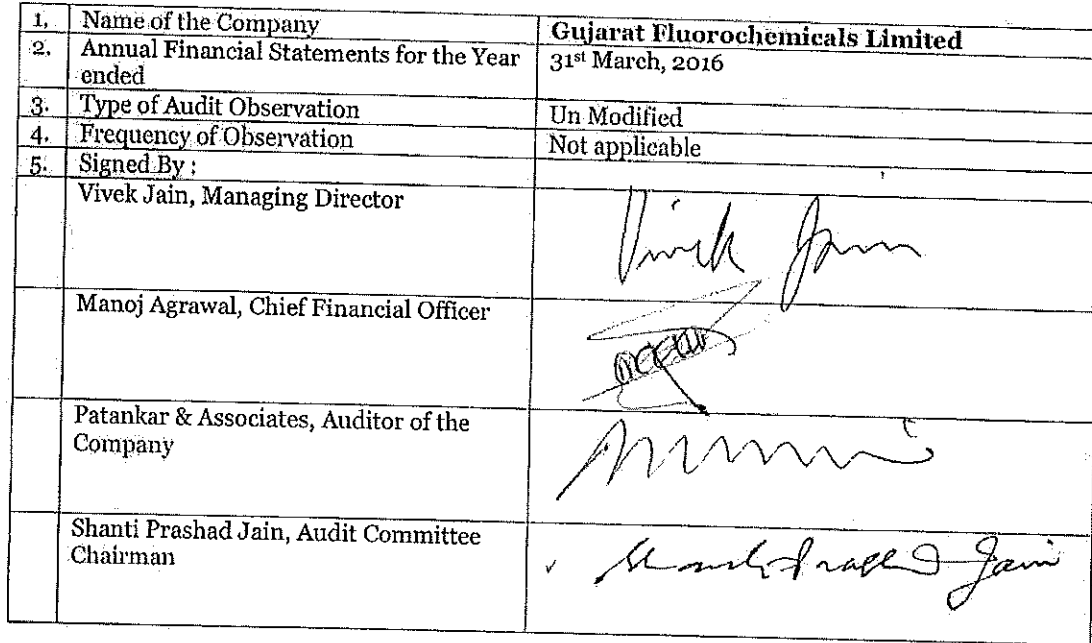 1. Name of the Company Gujarat Fluorochemicals Limited
2. Annual Financial Statements for the Year 31st March, 2016
ended
3. Type of Audit Observation Un Modified
4. Frequency of Observation Not applicable
5. Signed By :
Vivek Jain, Managing Director
Vivek Jain
Manoj Agrawal, Chief Financial Officer
Patankar & Associates, Auditor of the
Company
Shanti Prashad Jain, Audit Committee
Chairman
Shanti Prashad Jain